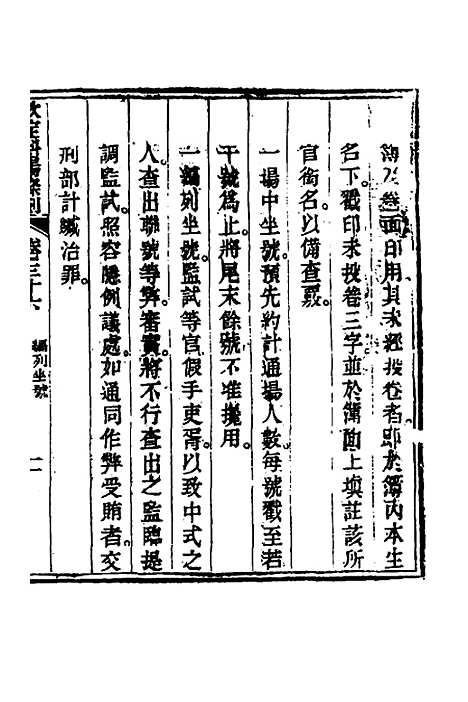 簿及卷面印用其未經投卷者即於簿內本生
名下戳印未投卷三字並於簿面上填註該所
官銜名以備查覈
一場中坐號預先約計通場人數每號戳至若
干號爲止將尾末餘號不准攙用
一編列坐號監試等官假手吏胥以致中式之
人查出聯號等弊審實將不行查出之監臨提
調監試照容隱例議處如通同作弊受賄者交
刑部計贓治罪
欽定科場條例 卷三十 編列坐號 二